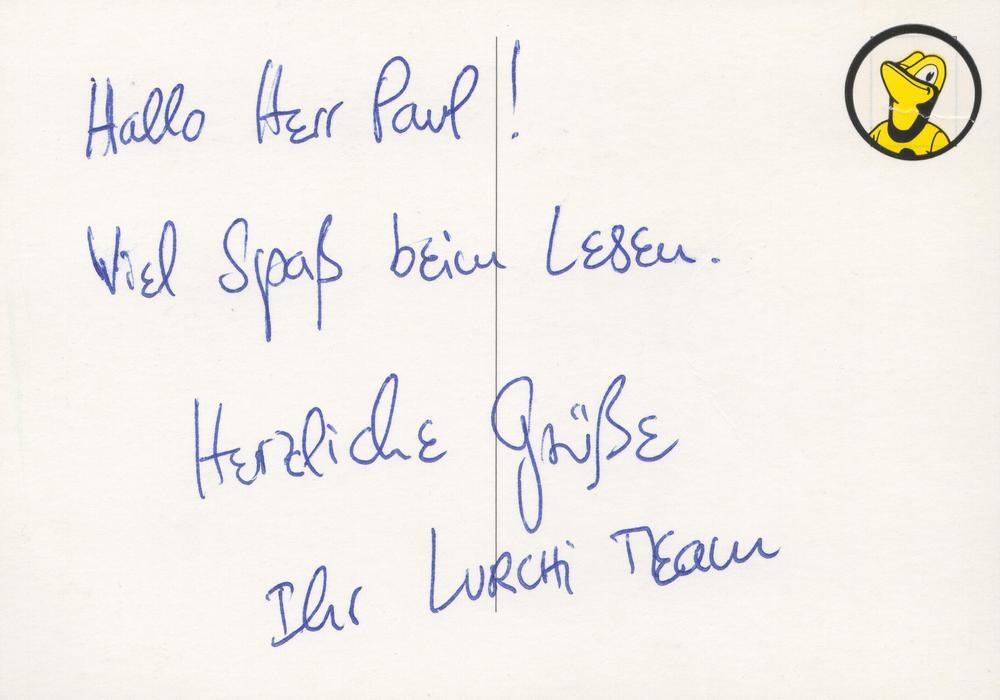 Hallo Herr Paul!
Viel Spaß beim Lesen.
Herzliche Grüße
Ihr LURCHi TEam